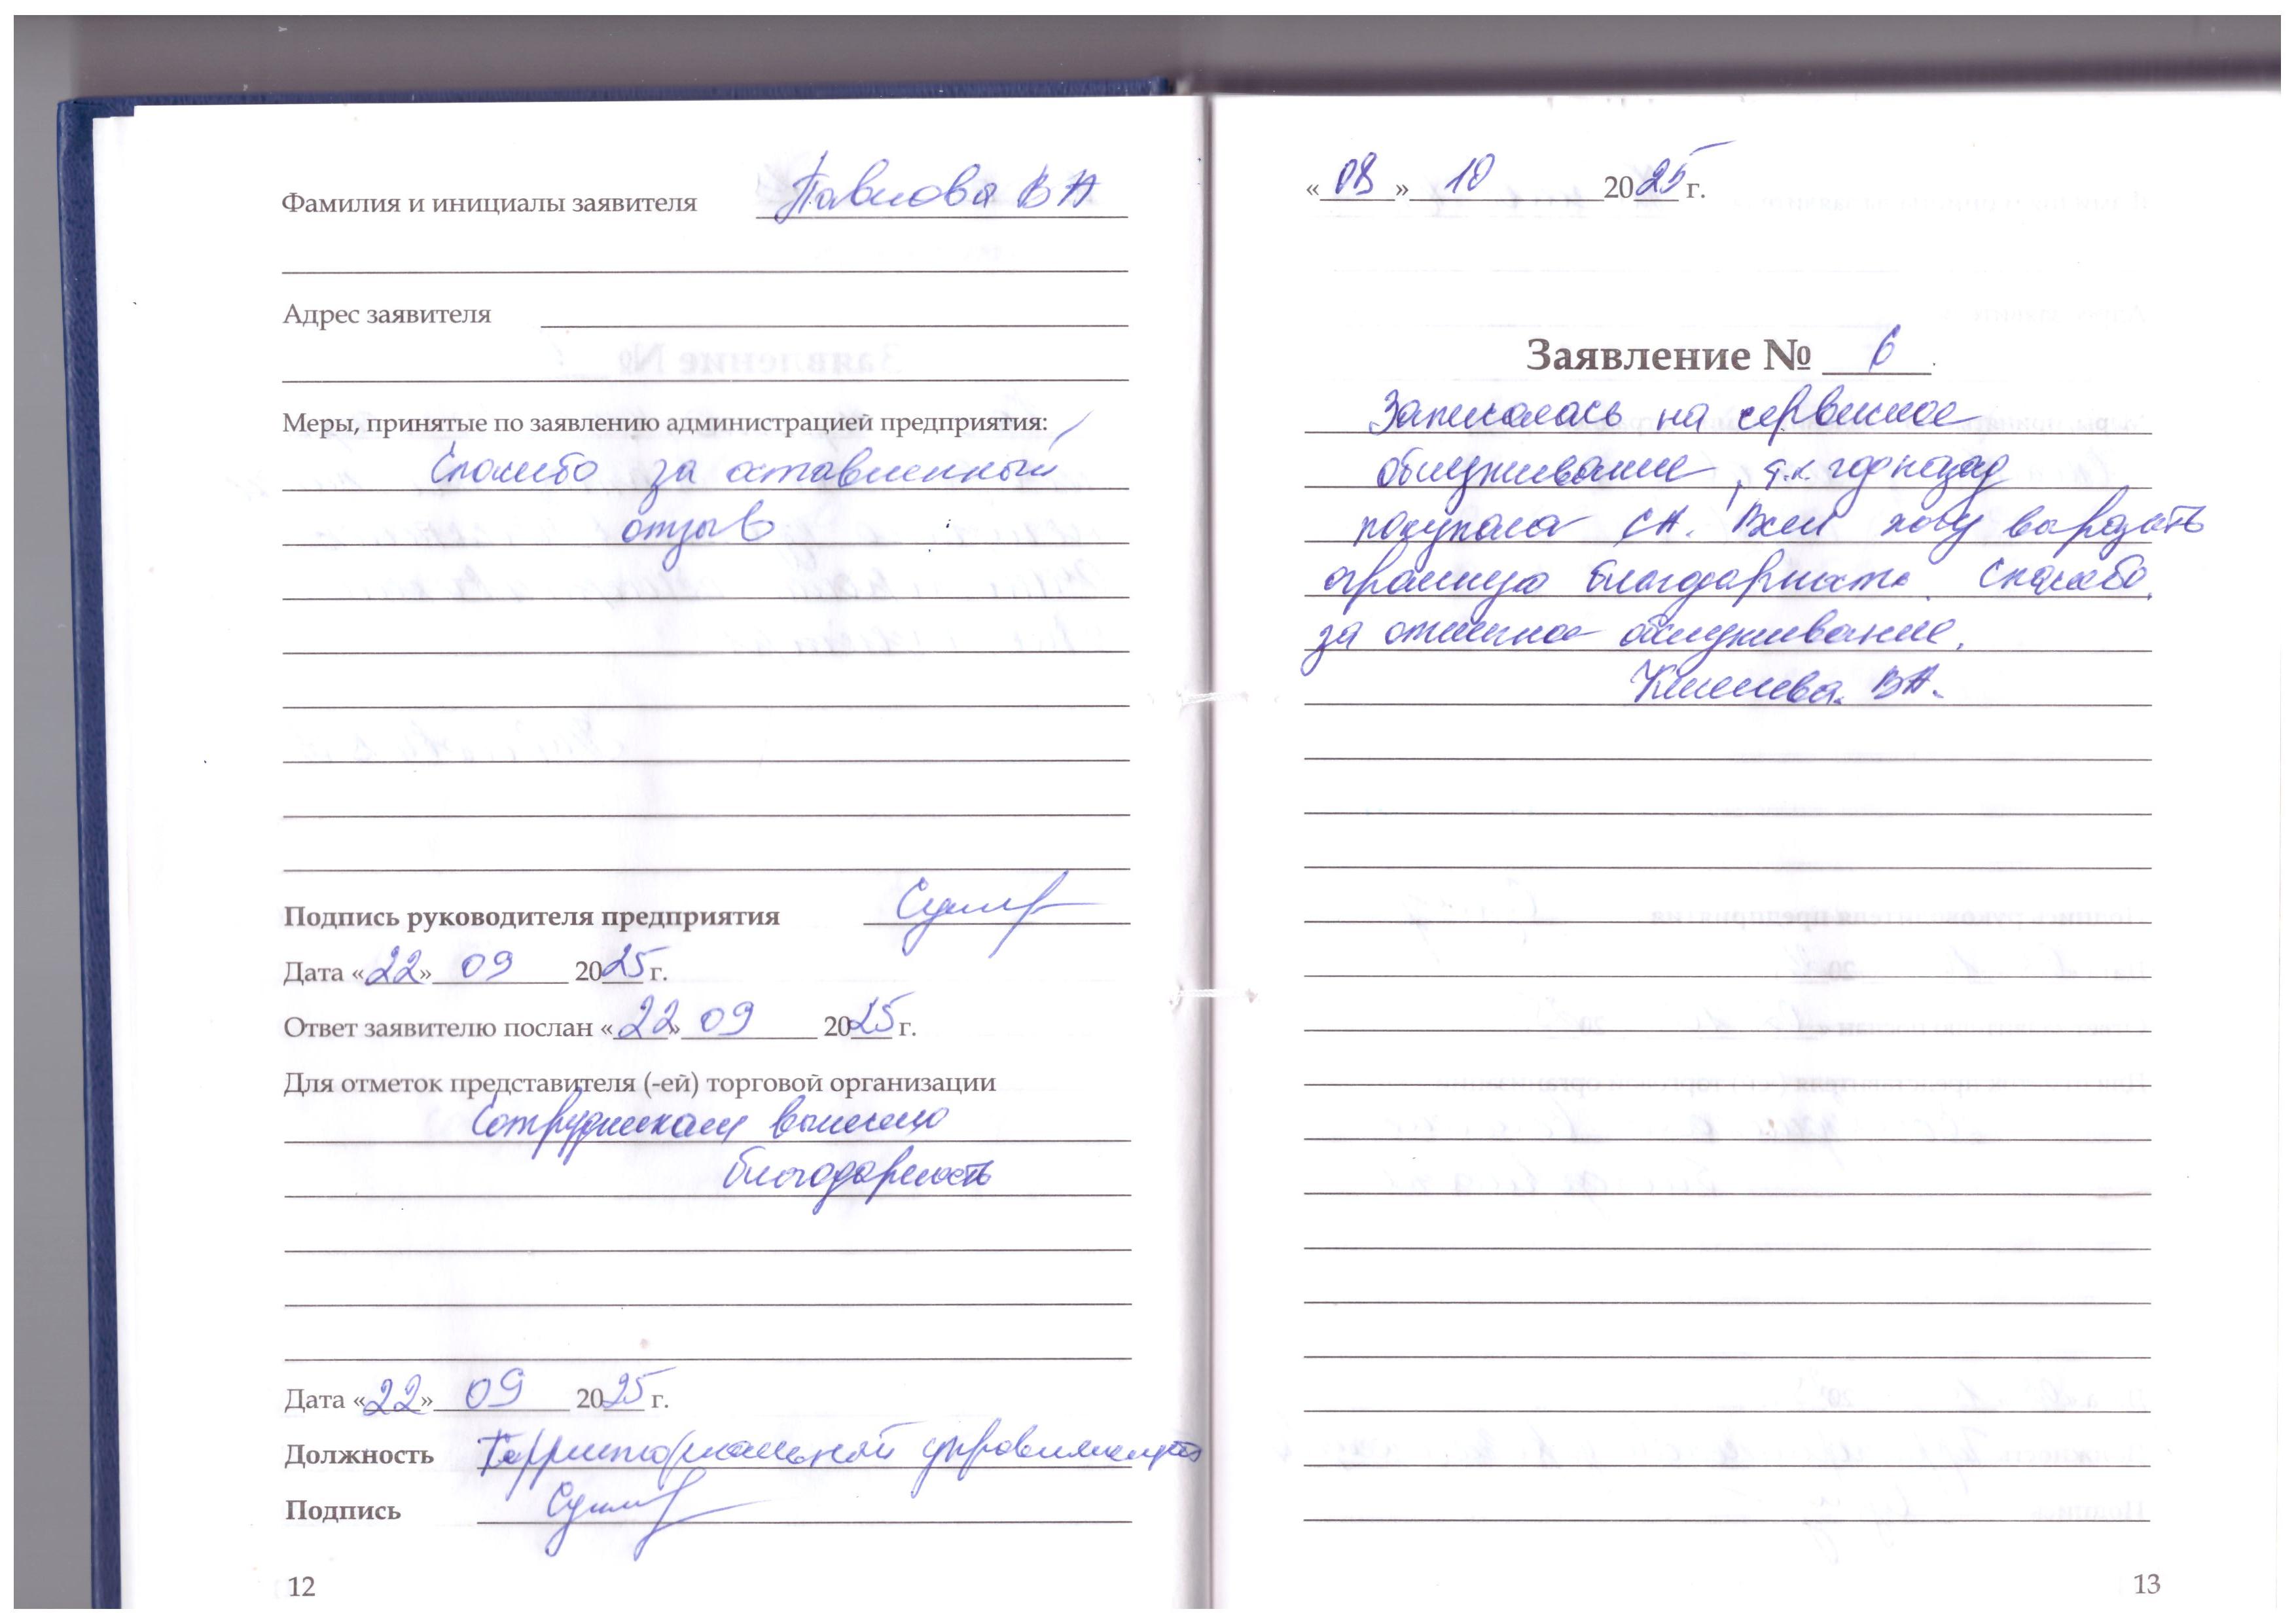 Фамилия и инициалы заявителя Павлова В А
Адрес заявителя
Меры, принятые по заявлению администрацией предприятия:
Спасибо за оставленный
отзыв
Подпись руководителя предприятия
Дата «22» 09 2025 г.
Ответ заявителю послан «22» 09 2025 г.
Для отметок представителя (-ей) торговой организации
Сотрудникам вынесена
благодарность
Дата «22» 09 2025 г.
Должность Территориальный управляющий
Подпись
12
«08» 10 2025 г.
Заявление № 6
Записалась на сервисное
обслуживание, т.к. год назад
покупала СА. Всем хочу выразить
огромную благодарность. Спасибо
за отличное обслуживание.
В.А.
13